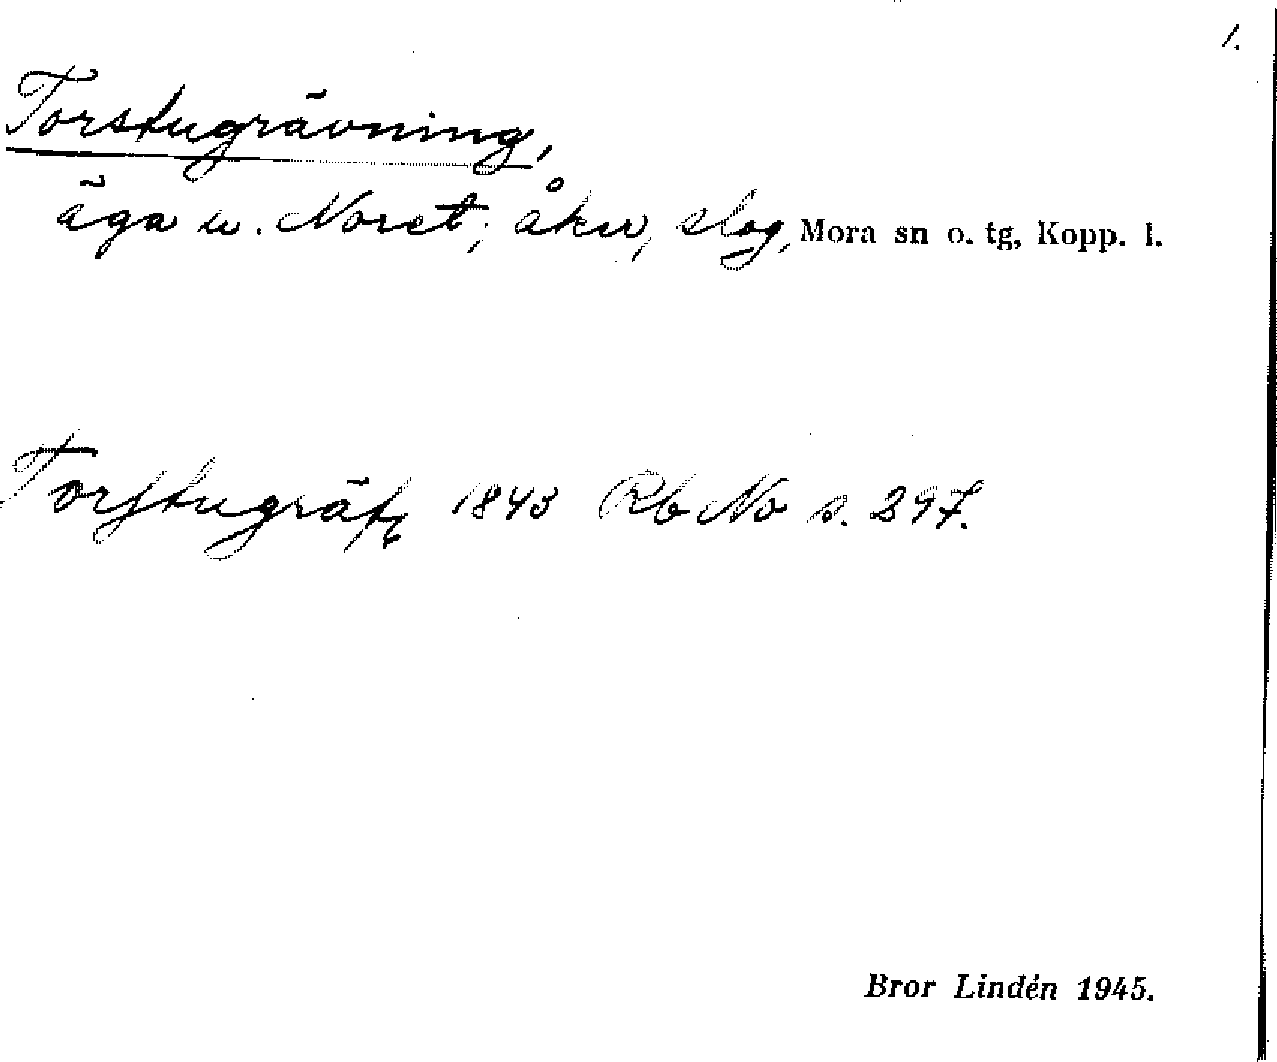 1.
Torstugrävning,
äga u. Noret; åker, slog, Mora sn o. tg, Kopp. l.
Torstugräf 1843 Rb No s. 297.
Bror Lindén 1945.